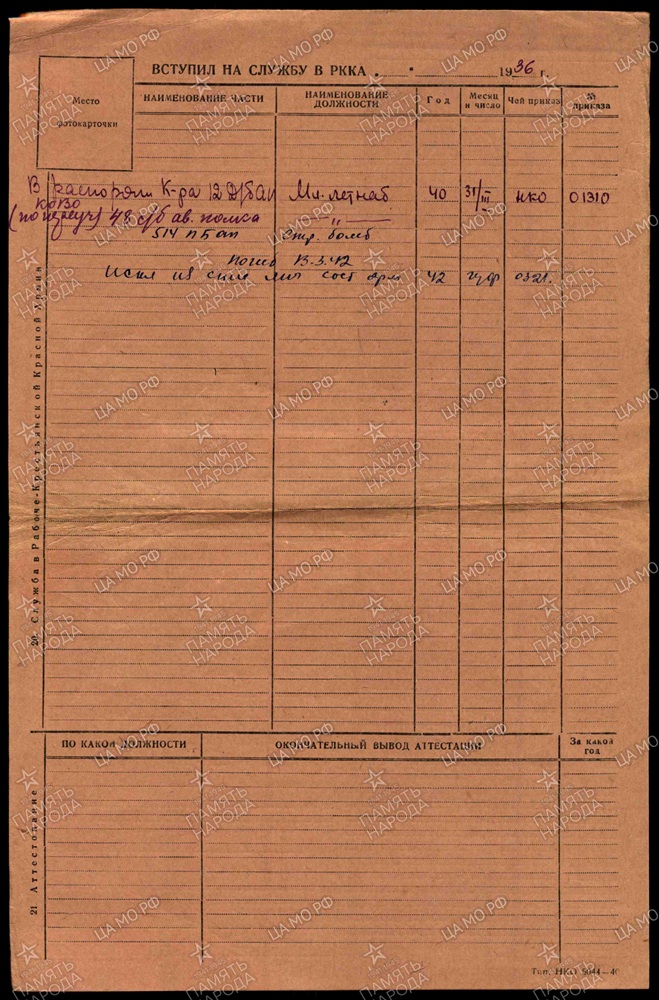 ВСТУПИЛ НА СЛУЖБУ В РККА „ " 1936 г.
Место фотокарточки
НАИМЕНОВАНИЕ ЧАСТИ
НАИМЕНОВАНИЕ ДОЛЖНОСТИ
Год
Месяц и число
Чей приказ
№ приказа
В распоряж К-ра 12 Мл. летнаб 40 31/III НКО 01310
КОВО
48 сб ав. полка —"—
514 пбап Стр. бомб
Погиб 13.3.42
Искл из спис лич сост арм 42 гуф 0321.
20 Служба в Рабоче-Крестьянской Красной Армии
ПО КАКОЙ ДОЛЖНОСТИ
ОКОНЧАТЕЛЬНЫЙ ВЫВОД АТТЕСТАЦИИ
За какой год
21 Аттестование
Тип. НКО 5044—40
ПАМЯТЬ НАРОДА
ЦА МО РФ